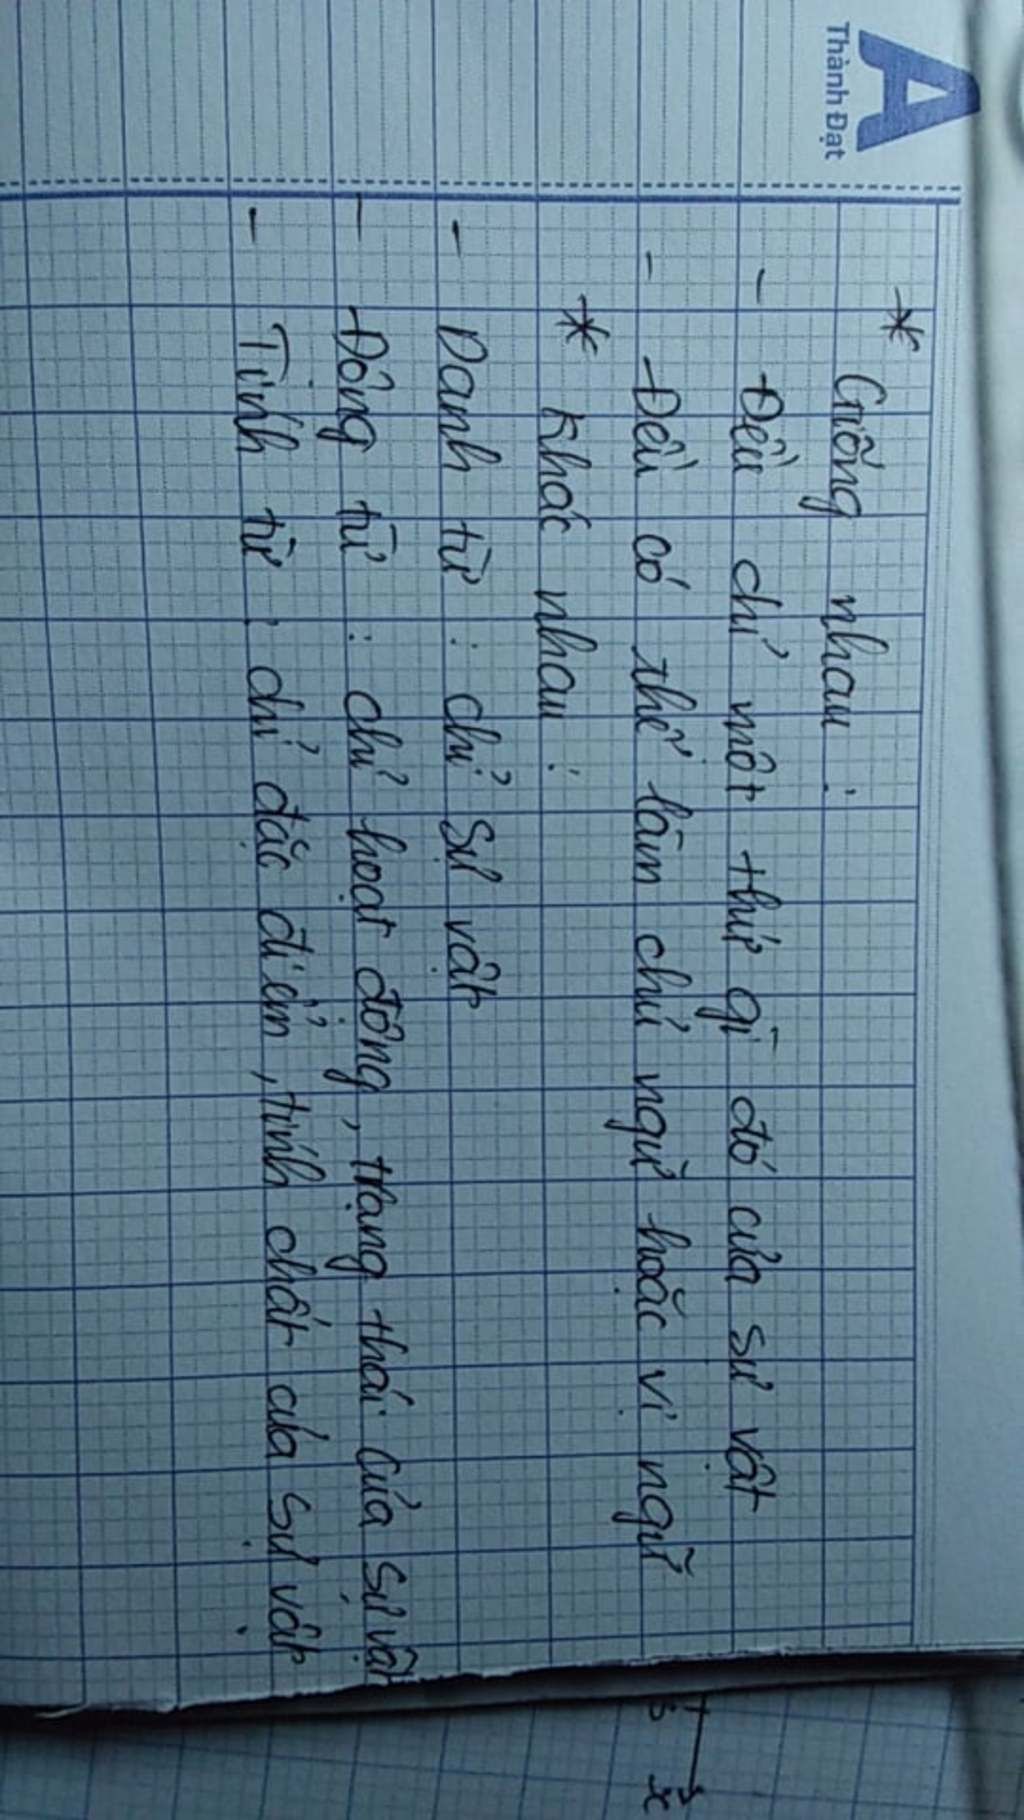 A
Thành Đạt
* Giống nhau :
- Đều chỉ một thứ gì đó của sự vật
- Đều có thể làm chủ ngữ hoặc vị ngữ
* Khác nhau :
- Danh từ : chỉ sự vật
- Động từ : chỉ hoạt động, trạng thái của sự vật
- Tính từ : chỉ đặc điểm, tính chất của sự vật